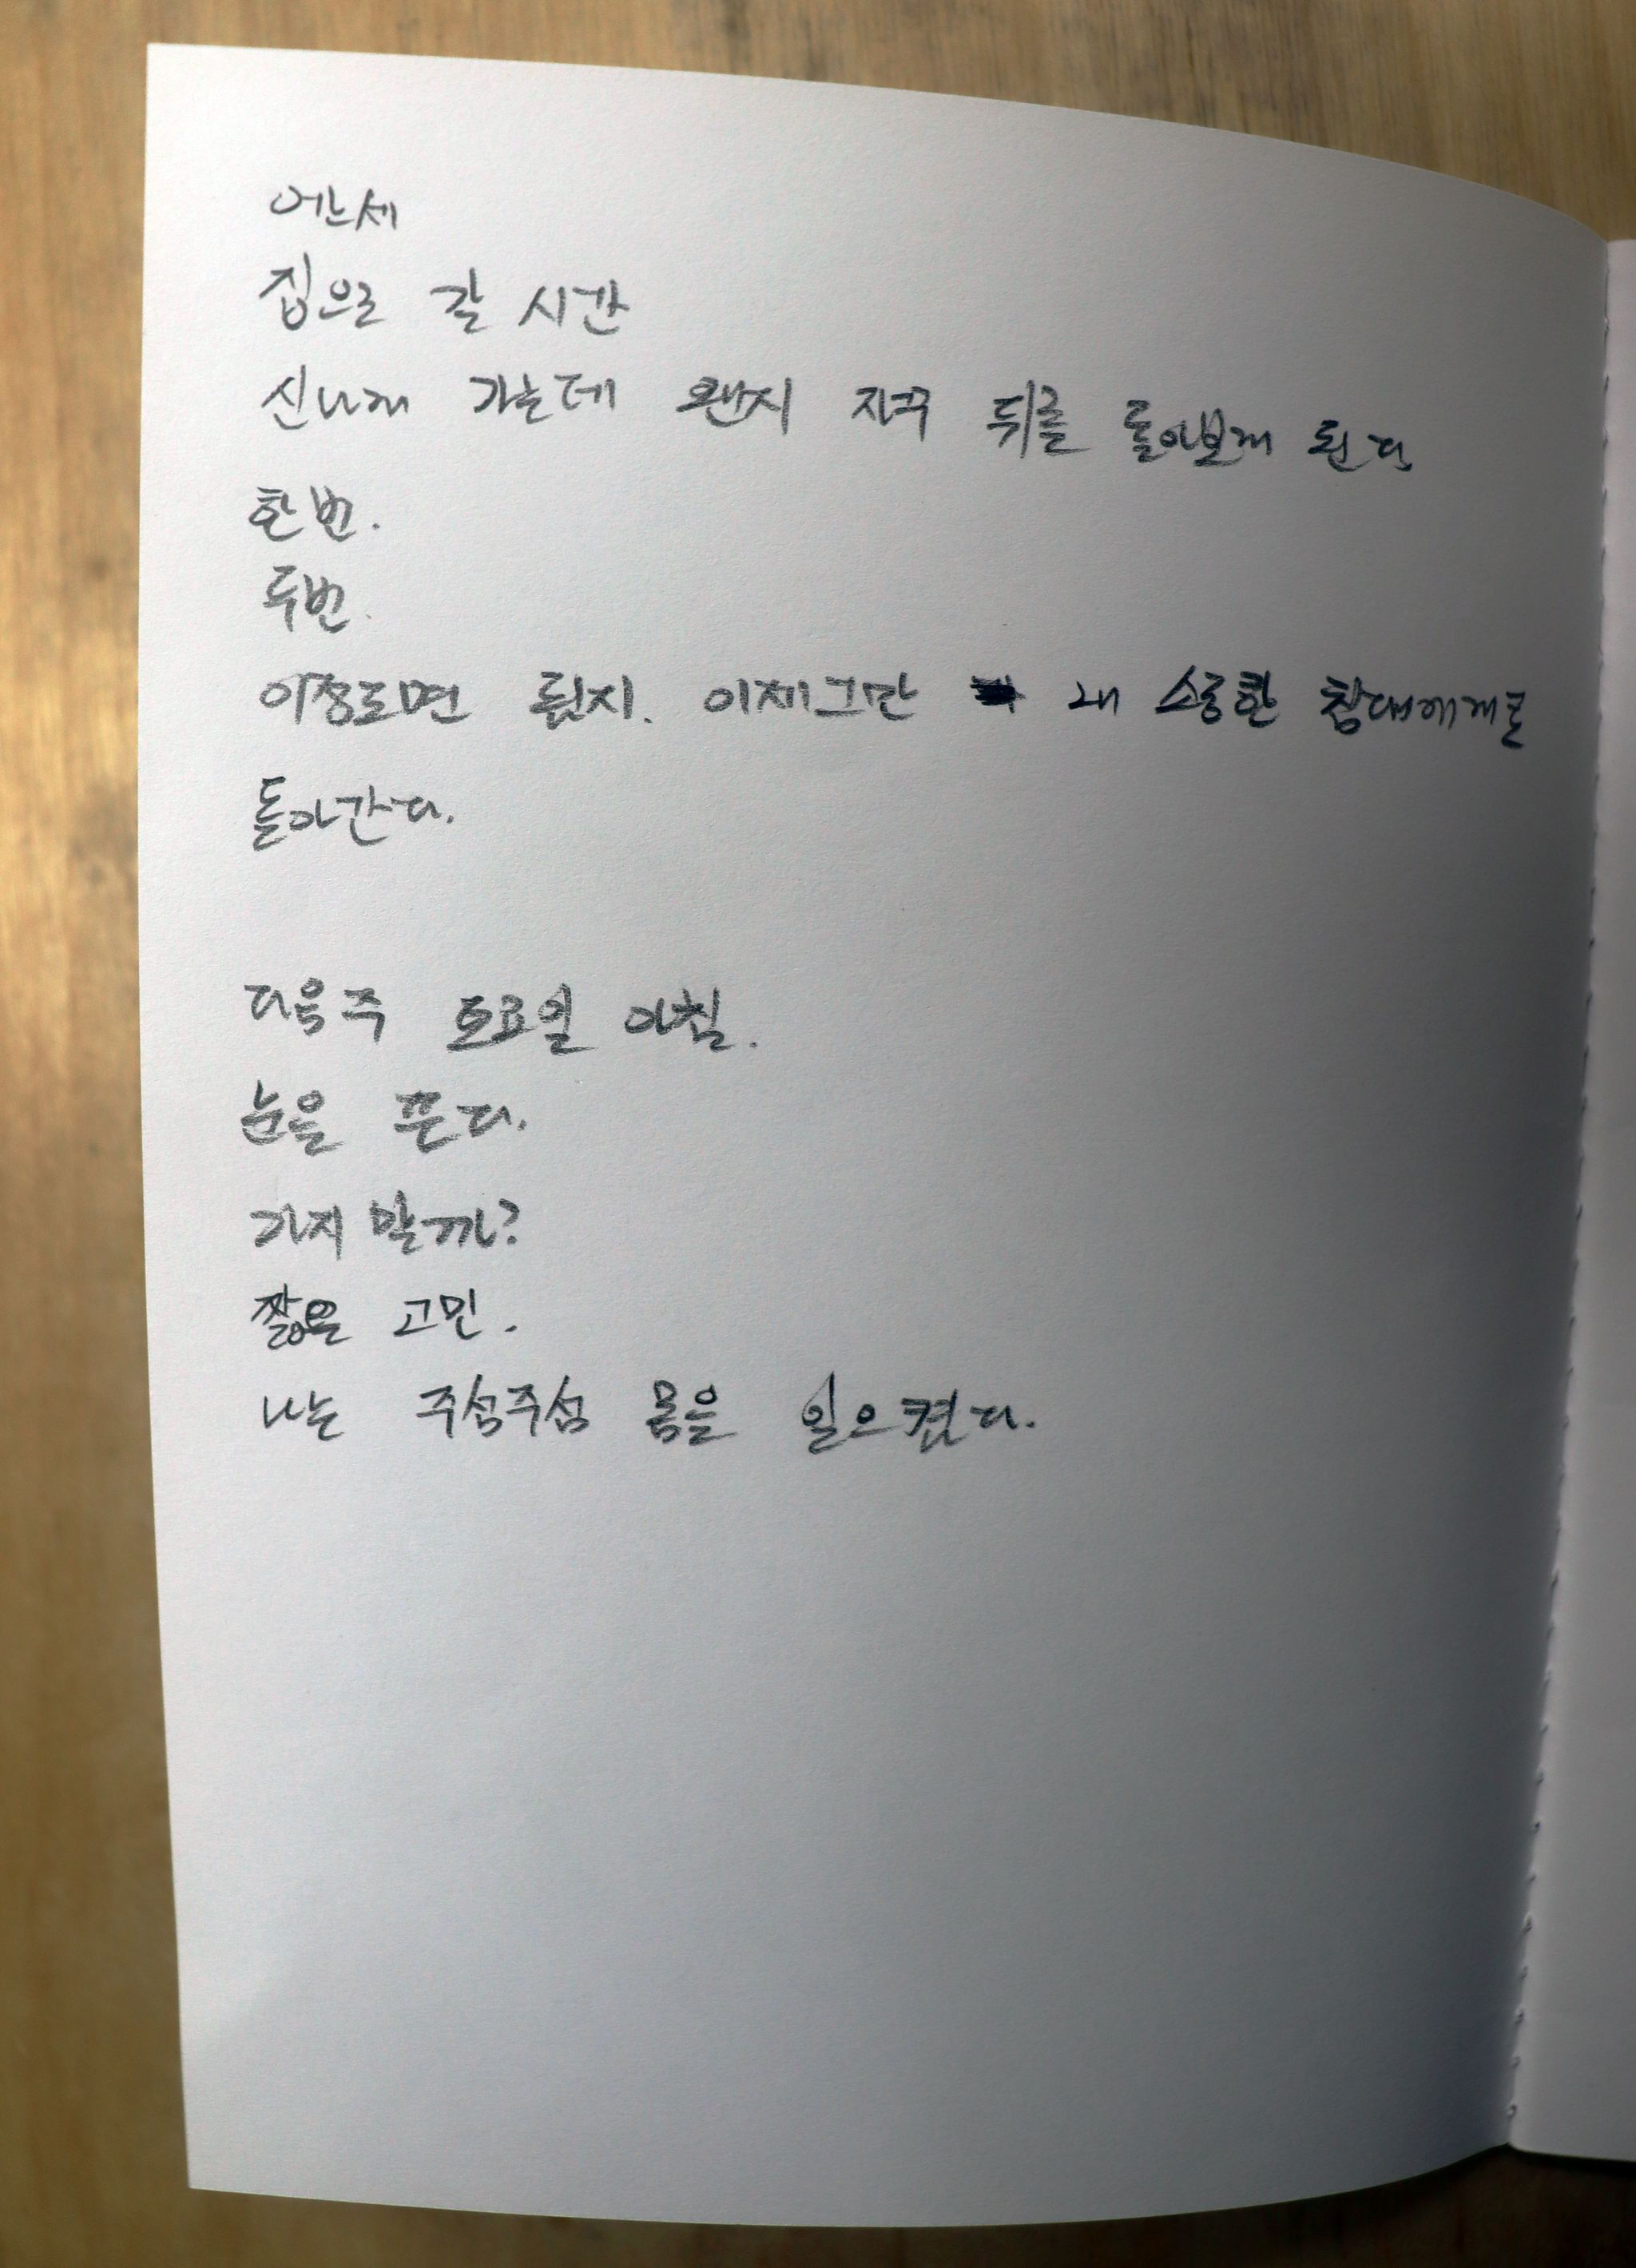 어느세
집으로 갈 시간
신나게 가는데 왠지 자꾸 뒤를 돌아보게 된다
한번.
두번.
이정도면 됐지. 이제그만 내 소중한 침대에게로
돌아간다.
다음주 토요일 아침.
눈을 뜬다.
가지 말까?
짧은 고민.
나는 주섬주섬 몸을 일으켰다.